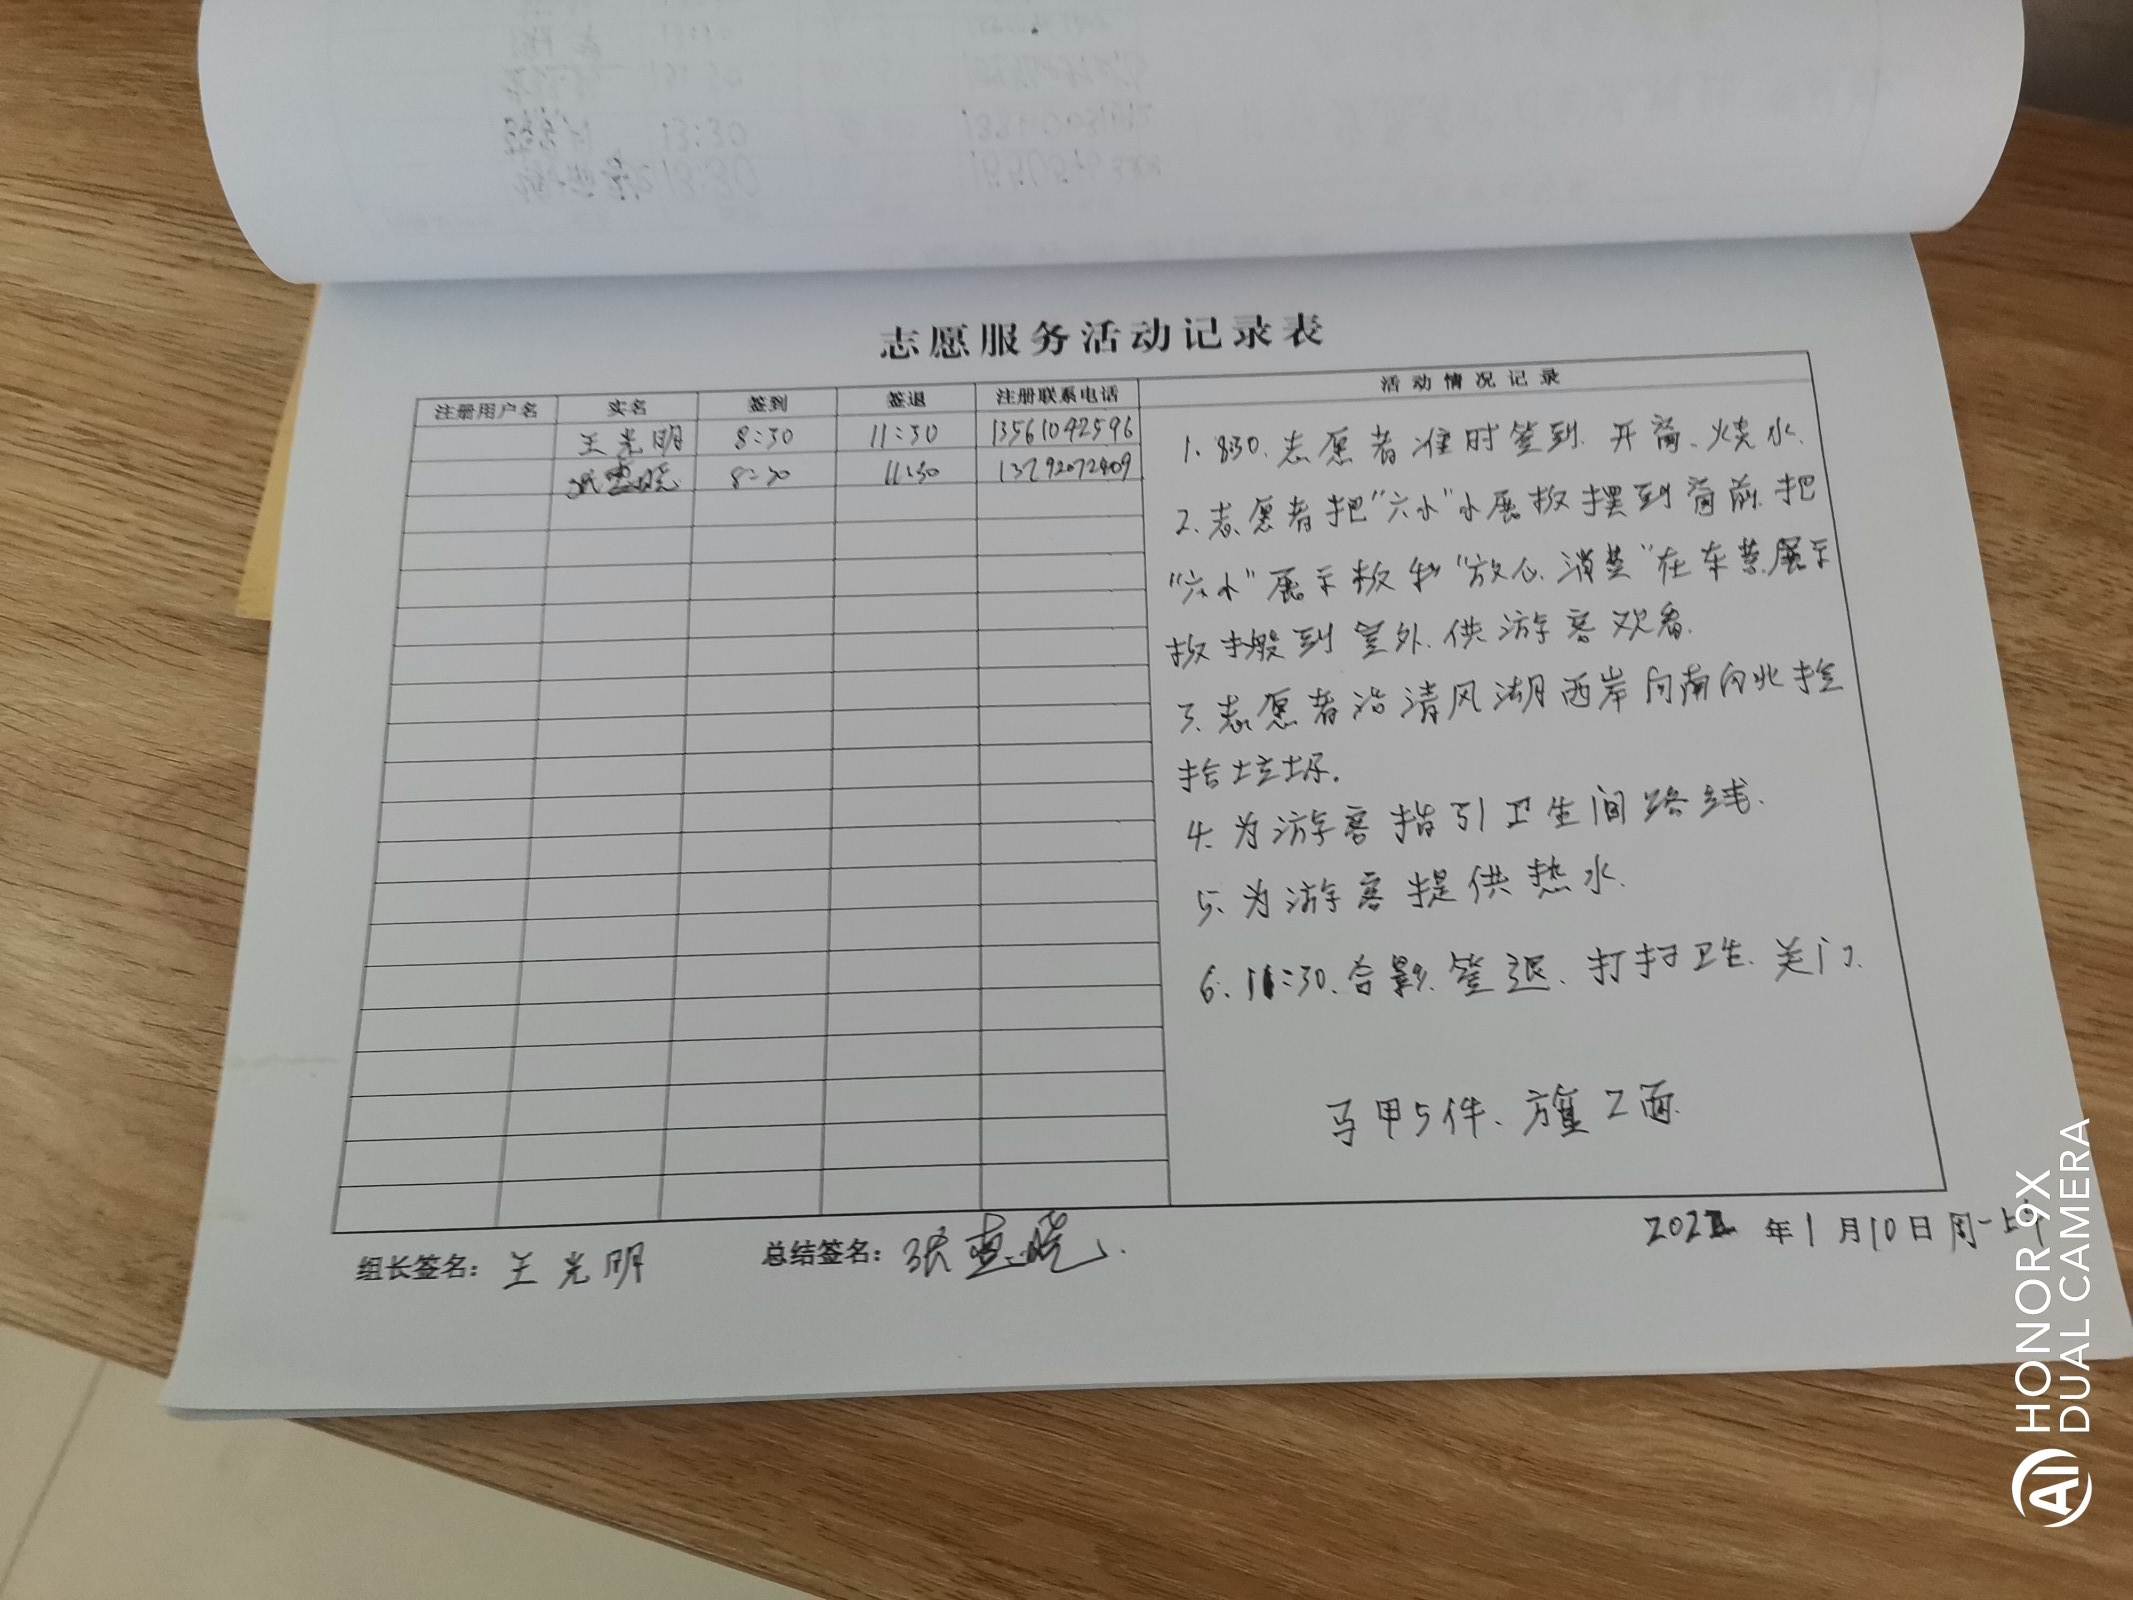 志愿服务活动记录表
注册用户名 实名 签到 签退 注册联系电话 活动情况记录
王光明 8:30 11:30 13561042596
8:30 11:30 13792072409
1. 8:30.志愿者准时签到.开窗、烧水.
2.志愿者把"六小"小展板摆到窗前.把
"六小"展示板和"放心消费"在车营展示
板搬到室外.供游客观看.
3.志愿者沿清风湖西岸向南向北捡
拾垃圾.
4.为游客指引卫生间路线.
5.为游客提供热水.
6.11:30.合影.签退.打扫卫生.关门.
马甲5件、旗2面.
组长签名：王光明 总结签名：张惠晓 2022年1月10日周一上午
HONOR 9X
DUAL CAMERA
AI